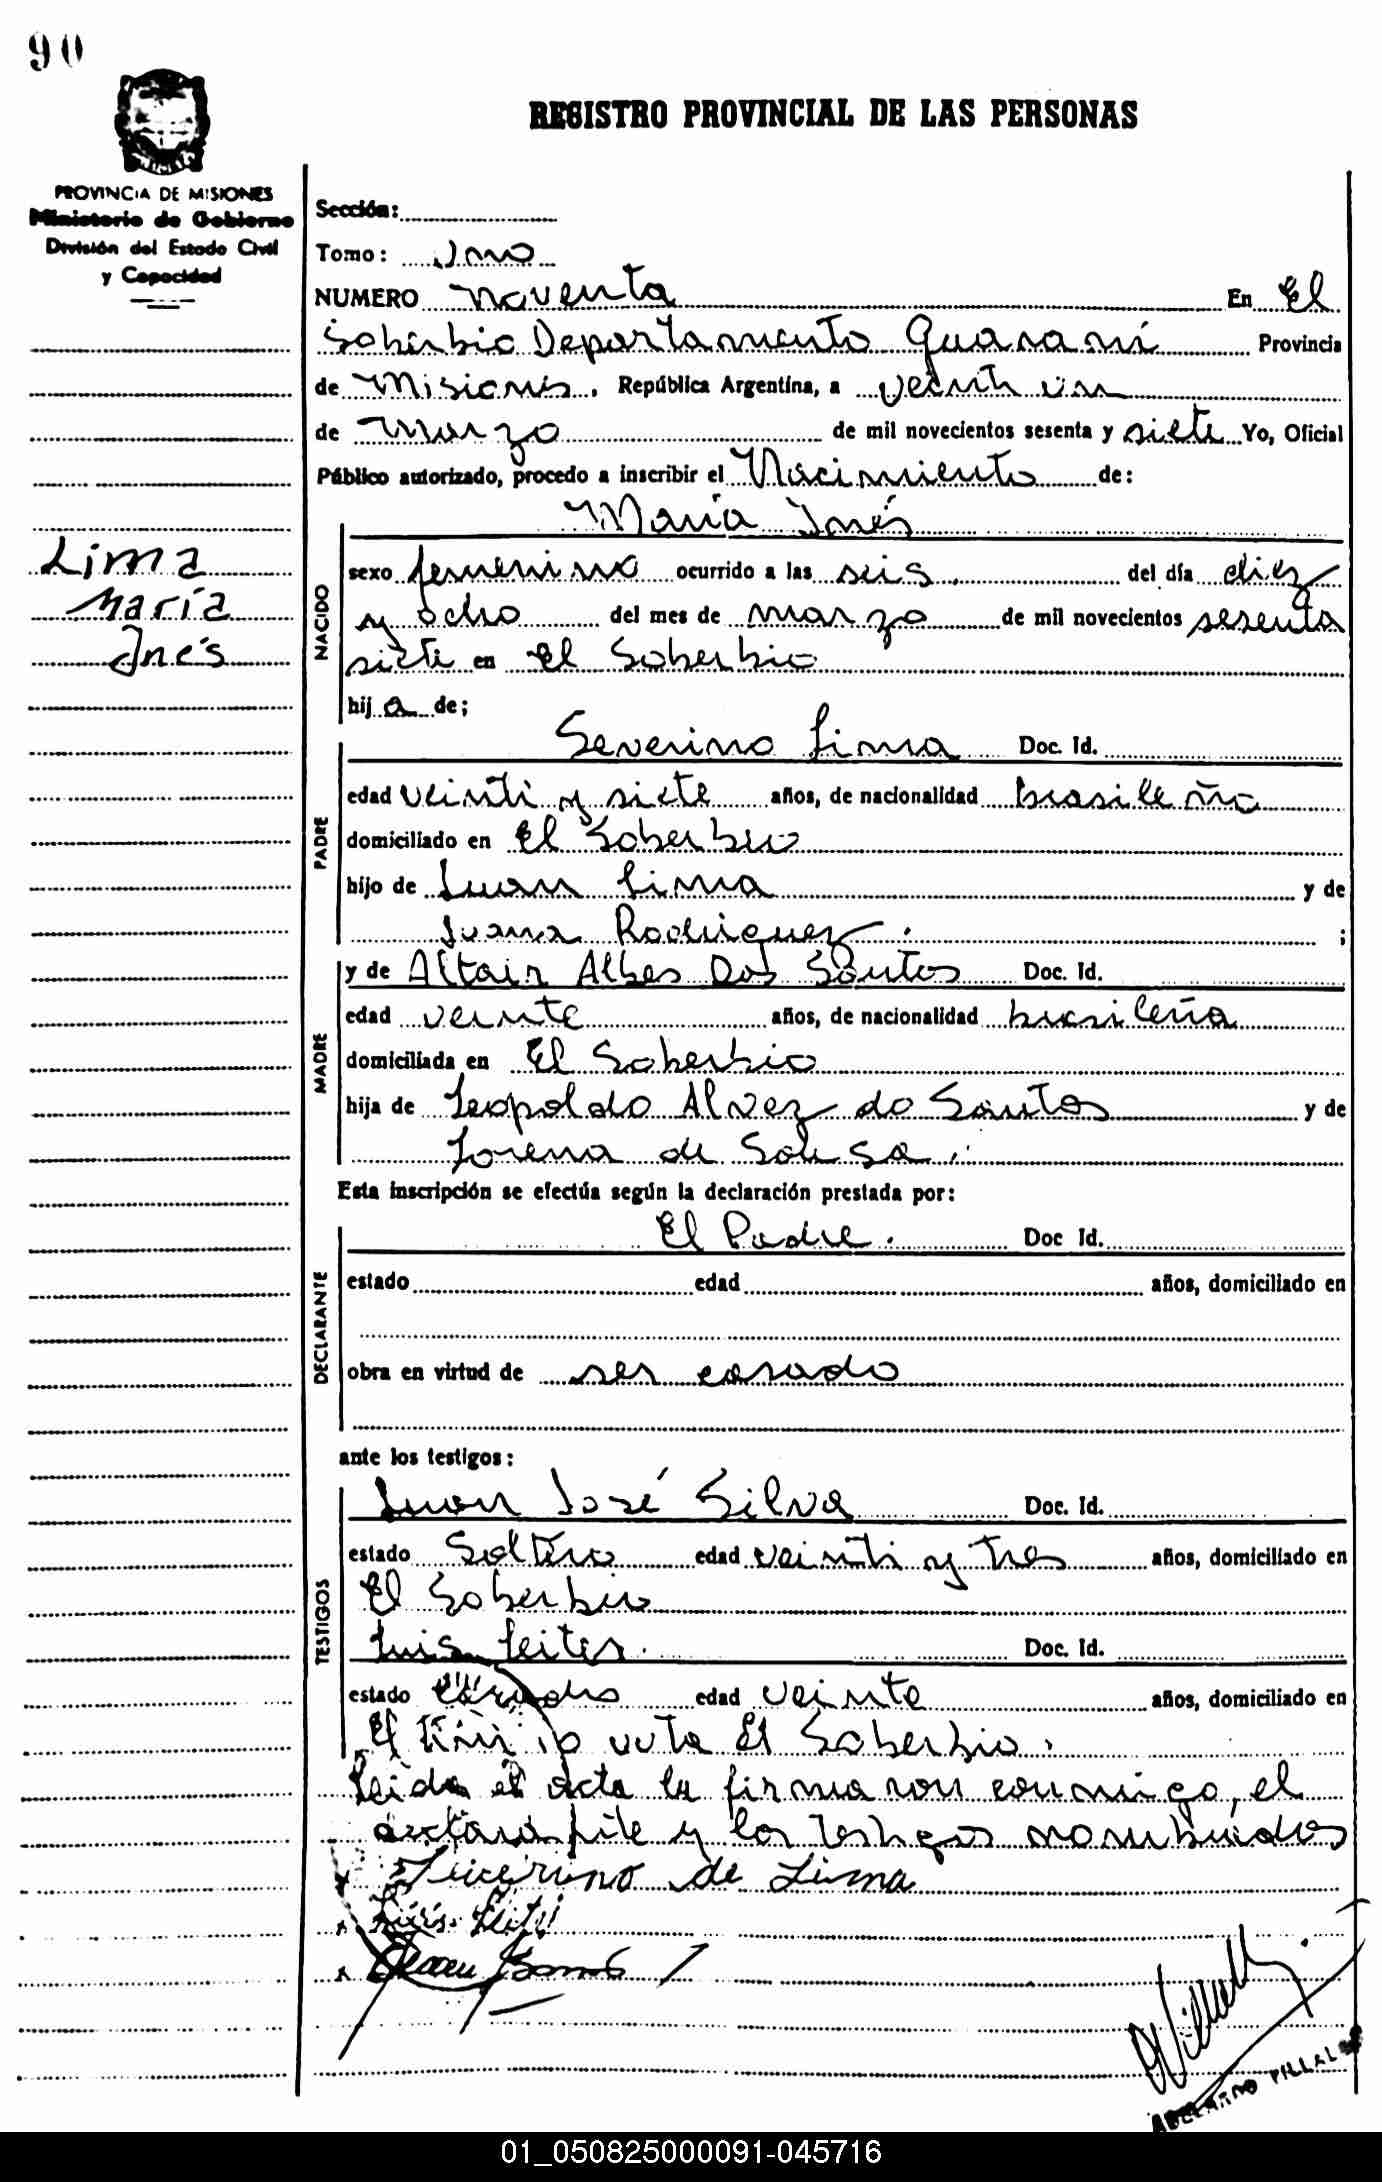 90
REGISTRO PROVINCIAL DE LAS PERSONAS
PROVINCIA DE MISIONES
Ministerio de Gobierno
División del Estado Civil
y Capacidad
Sección:
Tomo: Uno
NUMERO noventa En El
Soberbio Departamento Guaraní Provincia
de Misiones, República Argentina, a veinti un
de marzo de mil novecientos sesenta y siete Yo, Oficial
Público autorizado, procedo a inscribir el Nacimiento de:
María Inés
Lima
María
Inés
NACIDO
sexo femenino ocurrido a las seis. del día diez
y ocho del mes de marzo de mil novecientos sesenta
siete en El Soberbio
hij a de;
PADRE
Severino Lima Doc. Id.
edad veinti y siete años, de nacionalidad brasileño
domiciliado en El Soberbio
hijo de Juan Lima y de
Juana Rodriguez. ;
MADRE
y de Altair Albes Dos Santos Doc. Id.
edad veinte años, de nacionalidad brasileña
domiciliada en El Soberbio
hija de Leopoldo Alvez do Santos y de
Lorena de Solisa.
Esta inscripción se efectúa según la declaración prestada por:
DECLARANTE
El Padre. Doc Id.
estado edad años, domiciliado en
obra en virtud de ser casado
ante los testigos:
TESTIGOS
Juan José Silva Doc. Id.
estado Soltero edad veinti y tres años, domiciliado en
El Soberbio
Luis Leites. Doc. Id.
estado casado edad veinte años, domiciliado en
El Soberbio.
Leida el acta la firma con conmigo, el
y los testigos nombrados
de Lima
Luis
ADELARMO PILLAL
01_050825000091-045716